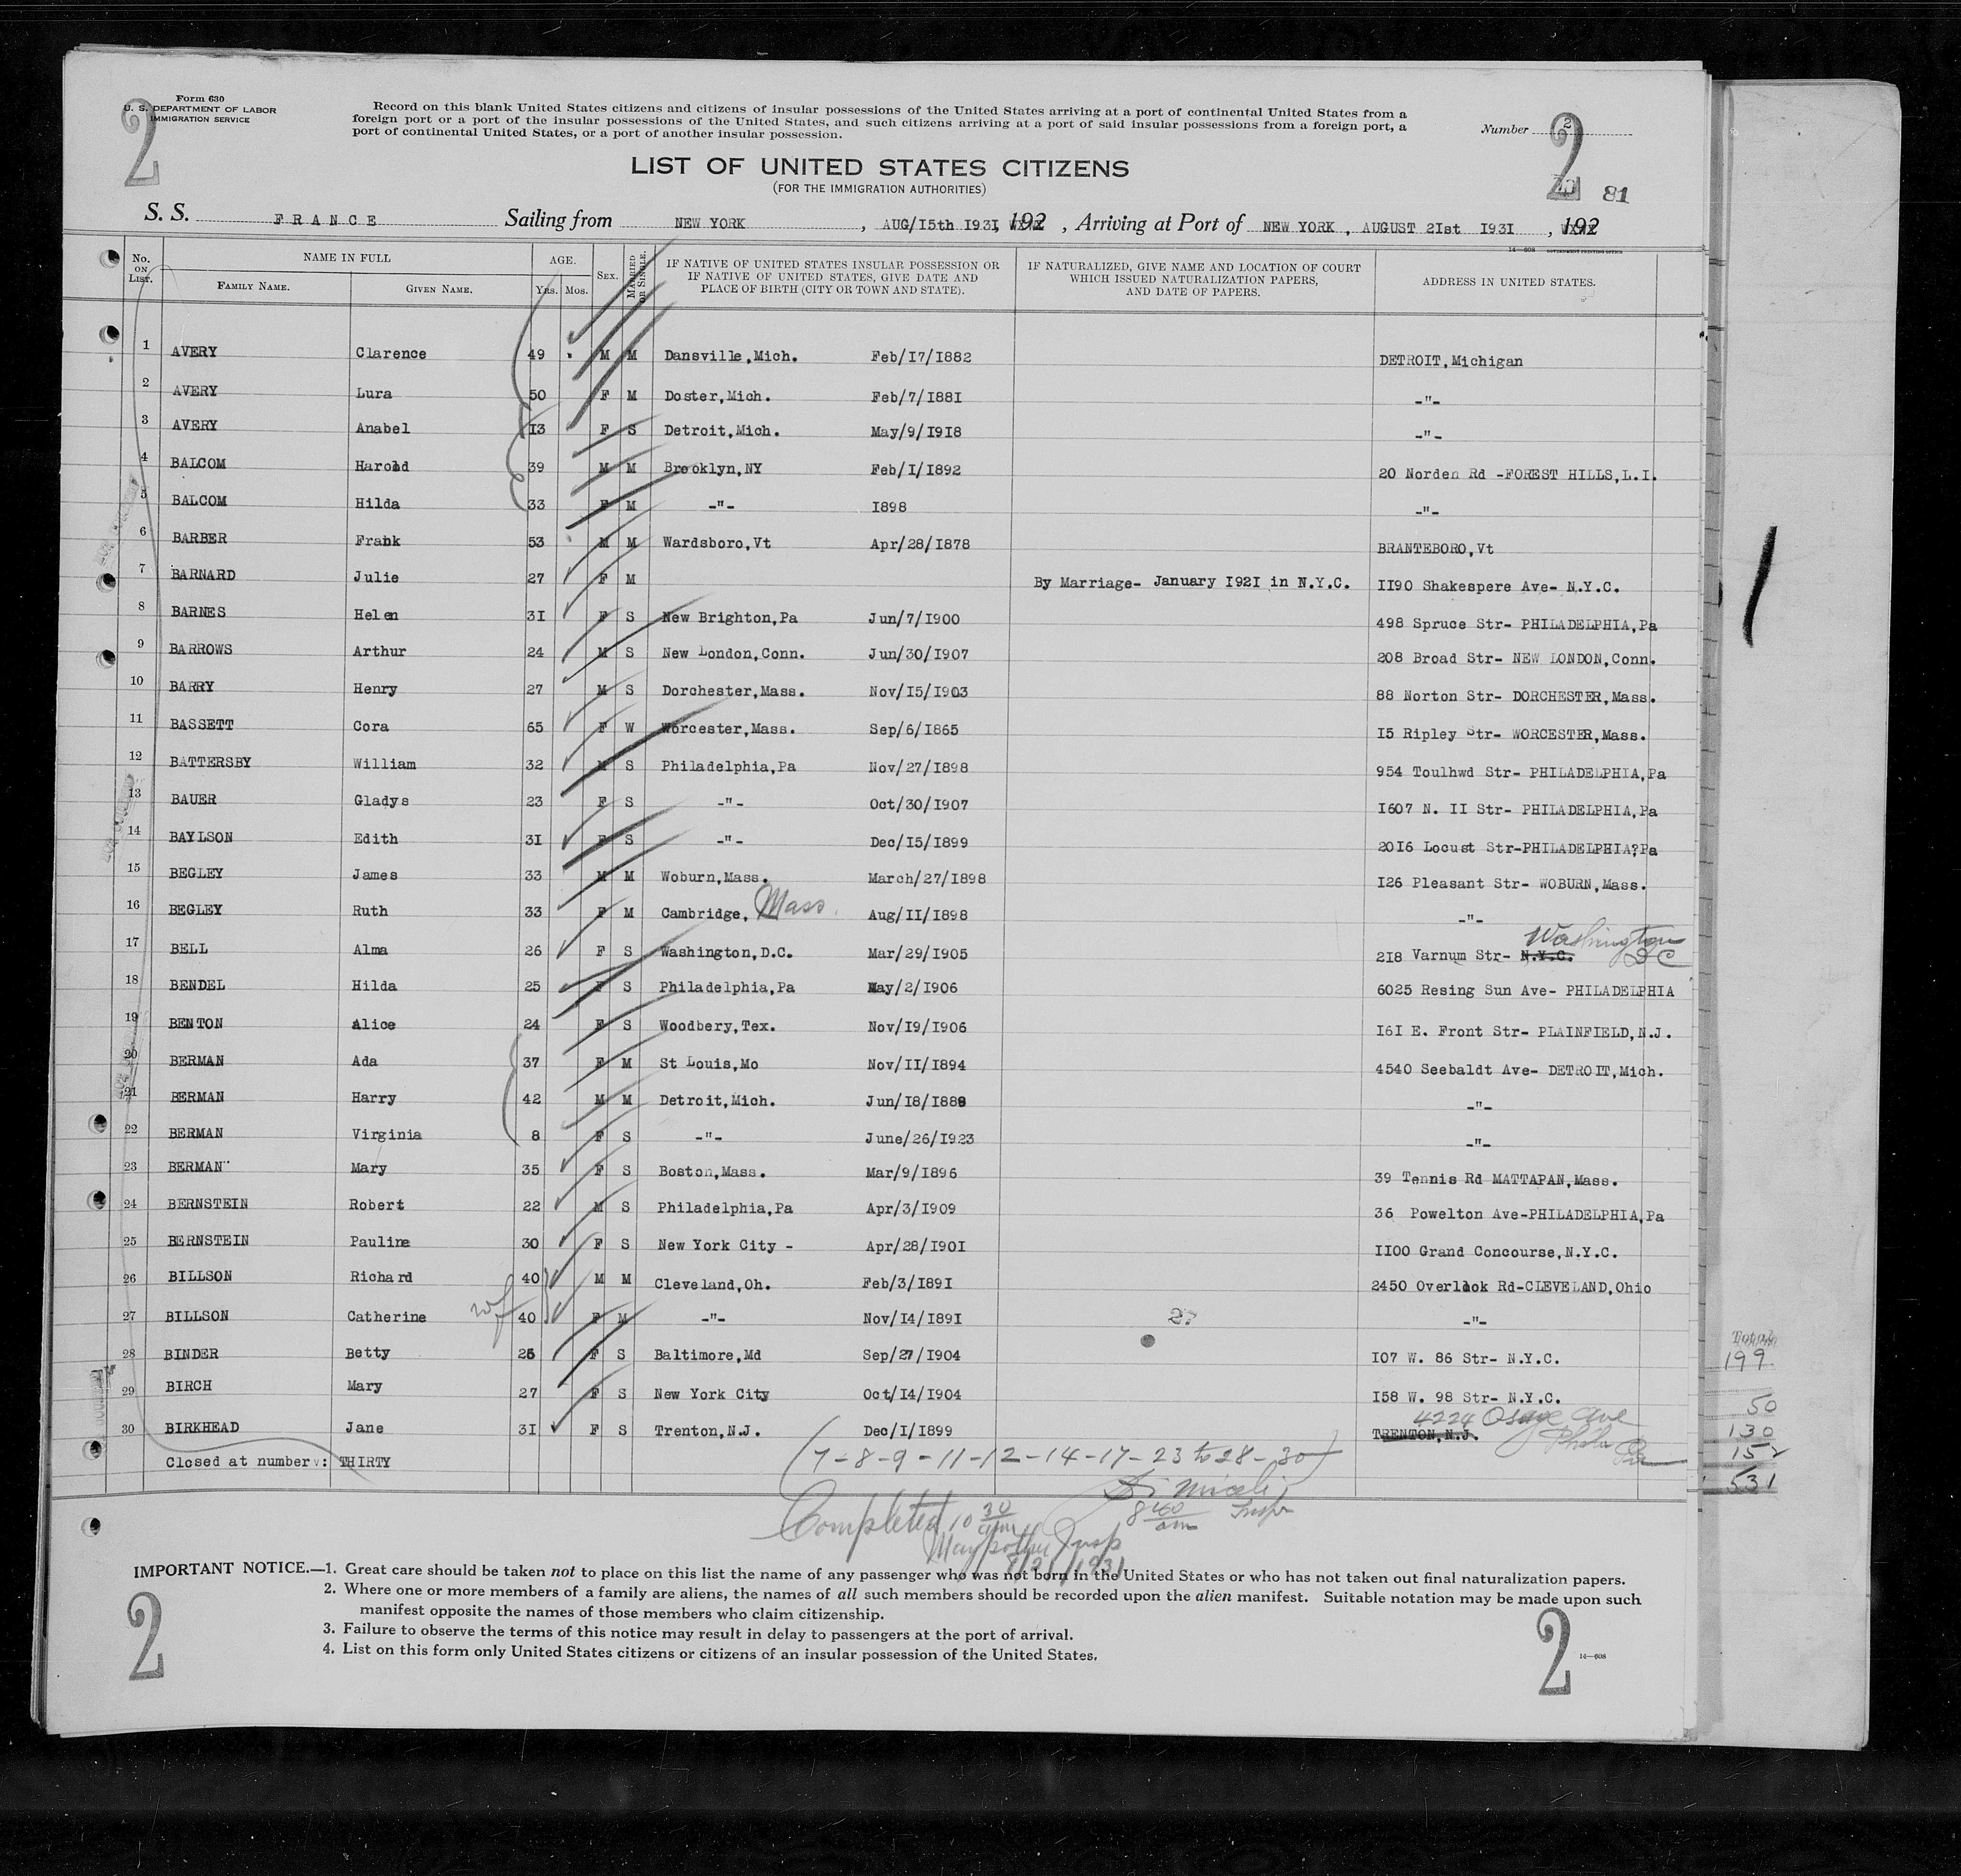 Form 630
U. S. DEPARTMENT OF LABOR
IMMIGRATION SERVICE
2
Record on this blank United States citizens and citizens of insular possessions of the United States arriving at a port of continental United States from a
foreign port or a port of the insular possessions of the United States, and such citizens arriving at a port of said insular possessions from a foreign port, a
port of continental United States, or a port of another insular possession.
Number 2
2
81
LIST OF UNITED STATES CITIZENS
(FOR THE IMMIGRATION AUTHORITIES)
S. S. FRANCE Sailing from NEW YORK , AUG/I5th I93I, 192 , Arriving at Port of NEW YORK , AUGUST 2Ist I93I , 192
14—608 GOVERNMENT PRINTING OFFICE
No. ON LIST. NAME IN FULL AGE. SEX. MARRIED OR SINGLE. IF NATIVE OF UNITED STATES INSULAR POSSESSION OR IF NATIVE OF UNITED STATES, GIVE DATE AND PLACE OF BIRTH (CITY OR TOWN AND STATE). IF NATURALIZED, GIVE NAME AND LOCATION OF COURT WHICH ISSUED NATURALIZATION PAPERS, AND DATE OF PAPERS. ADDRESS IN UNITED STATES.
FAMILY NAME. GIVEN NAME. Yrs. Mos.
1 AVERY Clarence 49 M M Dansville,Mich. Feb/I7/I882 DETROIT,Michigan
2 AVERY Lura 50 F M Doster,Mich. Feb/7/I88I -"-
3 AVERY Anabel I3 F S Detroit,Mich. May/9/I9I8 -"-
4 BALCOM Harold 39 M M Brooklyn,NY Feb/I/I892 20 Norden Rd -FOREST HILLS,L.I.
5 BALCOM Hilda 33 F M -"- I898 -"-
6 BARBER Frank 53 M M Wardsboro,Vt Apr/28/I878 BRANTEBORO,Vt
7 BARNARD Julie 27 F M By Marriage- January I92I in N.Y.C. II90 Shakespere Ave- N.Y.C.
8 BARNES Helen 3I F S New Brighton,Pa Jun/7/I900 498 Spruce Str- PHILADELPHIA,Pa
9 BARROWS Arthur 24 M S New London,Conn. Jun/30/I907 208 Broad Str- NEW LONDON,Conn.
10 BARRY Henry 27 M S Dorchester,Mass. Nov/I5/I903 88 Norton Str- DORCHESTER,Mass.
11 BASSETT Cora 65 F W Worcester,Mass. Sep/6/I865 I5 Ripley Str- WORCESTER,Mass.
12 BATTERSBY William 32 M S Philadelphia,Pa Nov/27/I898 954 Toulhwd Str- PHILADELPHIA,Pa
13 BAUER Gladys 23 F S -"- Oct/30/I907 I607 N. II Str- PHILADELPHIA,Pa
14 BAYLSON Edith 3I F S -"- Dec/I5/I899 20I6 Locust Str-PHILADELPHIA?Pa
15 BEGLEY James 33 M M Woburn,Mass. March/27/I898 I26 Pleasant Str- WOBURN,Mass.
16 BEGLEY Ruth 33 F M Cambridge, Mass. Aug/II/I898 -"-
17 BELL Alma 26 F S Washington,D.C. Mar/29/I905 2I8 Varnum Str- N.Y.C. Washington DC
18 BENDEL Hilda 25 F S Philadelphia,Pa May/2/I906 6025 Resing Sun Ave- PHILADELPHIA
19 BENTON Alice 24 F S Woodbery,Tex. Nov/I9/I906 I6I E. Front Str- PLAINFIELD,N.J.
20 BERMAN Ada 37 F M St Louis,Mo Nov/II/I894 4540 Seebaldt Ave- DETROIT,Mich.
21 BERMAN Harry 42 M M Detroit,Mich. Jun/I8/I889 -"-
22 BERMAN Virginia 8 F S -"- June/26/I923 -"-
23 BERMAN Mary 35 F S Boston,Mass. Mar/9/I896 39 Tennis Rd MATTAPAN,Mass.
24 BERNSTEIN Robert 22 M S Philadelphia,Pa Apr/3/I909 36 Powelton Ave-PHILADELPHIA,Pa
25 BERNSTEIN Pauline 30 F S New York City - Apr/28/I90I II00 Grand Concourse,N.Y.C.
26 BILLSON Richard 40 M M Cleveland,Oh. Feb/3/I89I 2450 Overlook Rd-CLEVELAND,Ohio
27 BILLSON Catherine wf 40 F M -"- Nov/I4/I89I 27 -"-
28 BINDER Betty 26 F S Baltimore,Md Sep/27/I904 I07 W. 86 Str- N.Y.C.
29 BIRCH Mary 27 F S New York City Oct/I4/I904 I58 W. 98 Str- N.Y.C.
30 BIRKHEAD Jane 3I F S Trenton,N.J. Dec/I/I899 TRENTON,N.J. 4224 Osage Ave Phila Pa
Closed at number: THIRTY
(7-8-9-11-12-14-17-23 to 28-30)
8 40 am Inspr
Completed 10 30 am
Insp
8/21/1931
Total
199
50
130
152
531
IMPORTANT NOTICE.—1. Great care should be taken not to place on this list the name of any passenger who was not born in the United States or who has not taken out final naturalization papers.
2. Where one or more members of a family are aliens, the names of all such members should be recorded upon the alien manifest. Suitable notation may be made upon such
manifest opposite the names of those members who claim citizenship.
3. Failure to observe the terms of this notice may result in delay to passengers at the port of arrival.
4. List on this form only United States citizens or citizens of an insular possession of the United States.
2
2
14—608